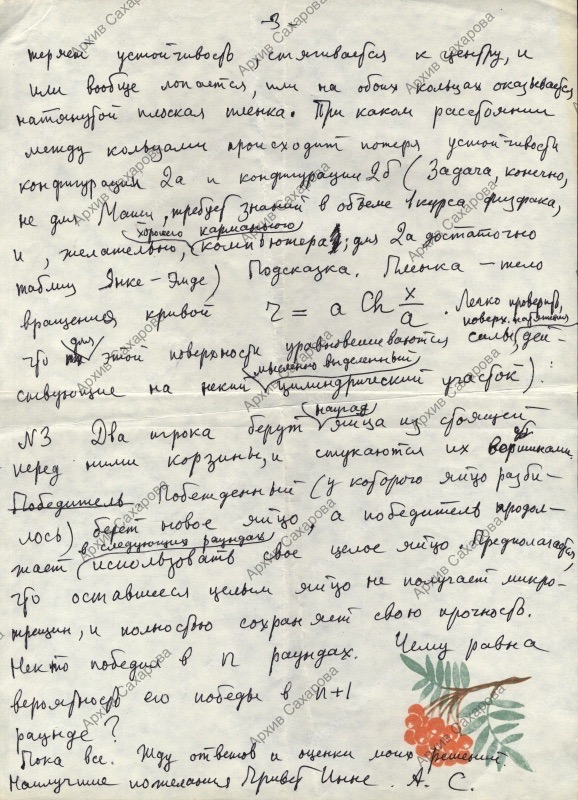 - 3 -
теряет устойчивость, стягивается к центру, и
или вообще лопается, или на обоих кольцах оказывается
натянутой плоская пленка. При каком расстоянии
между кольцами происходит потеря устойчивости
конфигурации 2а и конфигурации 2б (Задача, конечно,
не для Маши, требует знаний в объеме курса физфака,
хорошего карманного
и, желательно, компьютера; для 2а достаточно
таблиц Янке-Эмде) Подсказка. Пленка – тело
вращения кривой r = a Ch x/a. Легко проверить,
для поверх. натяжения
что этой поверхности уравновешиваются силы, дей-
мысленно выделенный
ствующие на некий цилиндрический участок).
наугад
N3 Два игрока берут яйца из стоящей
перед ними корзины, и стукаются их вершинами.
Победитель Побежденный (у которого яйцо разби-
лось) берет новое яйцо, а победитель продол-
в следующих раундах
жает использовать свое целое яйцо. Предполагается,
что оставшееся целым яйцо не получает микро-
трещин, и полностью сохраняет свою прочность.
Некто победил в n раундах. Чему равна
вероятность его победы в n+1
раунде?
Пока все. Жду ответов и оценки моих решений.
Наилучшие пожелания Привет Инне. А. С.
Архив Сахарова